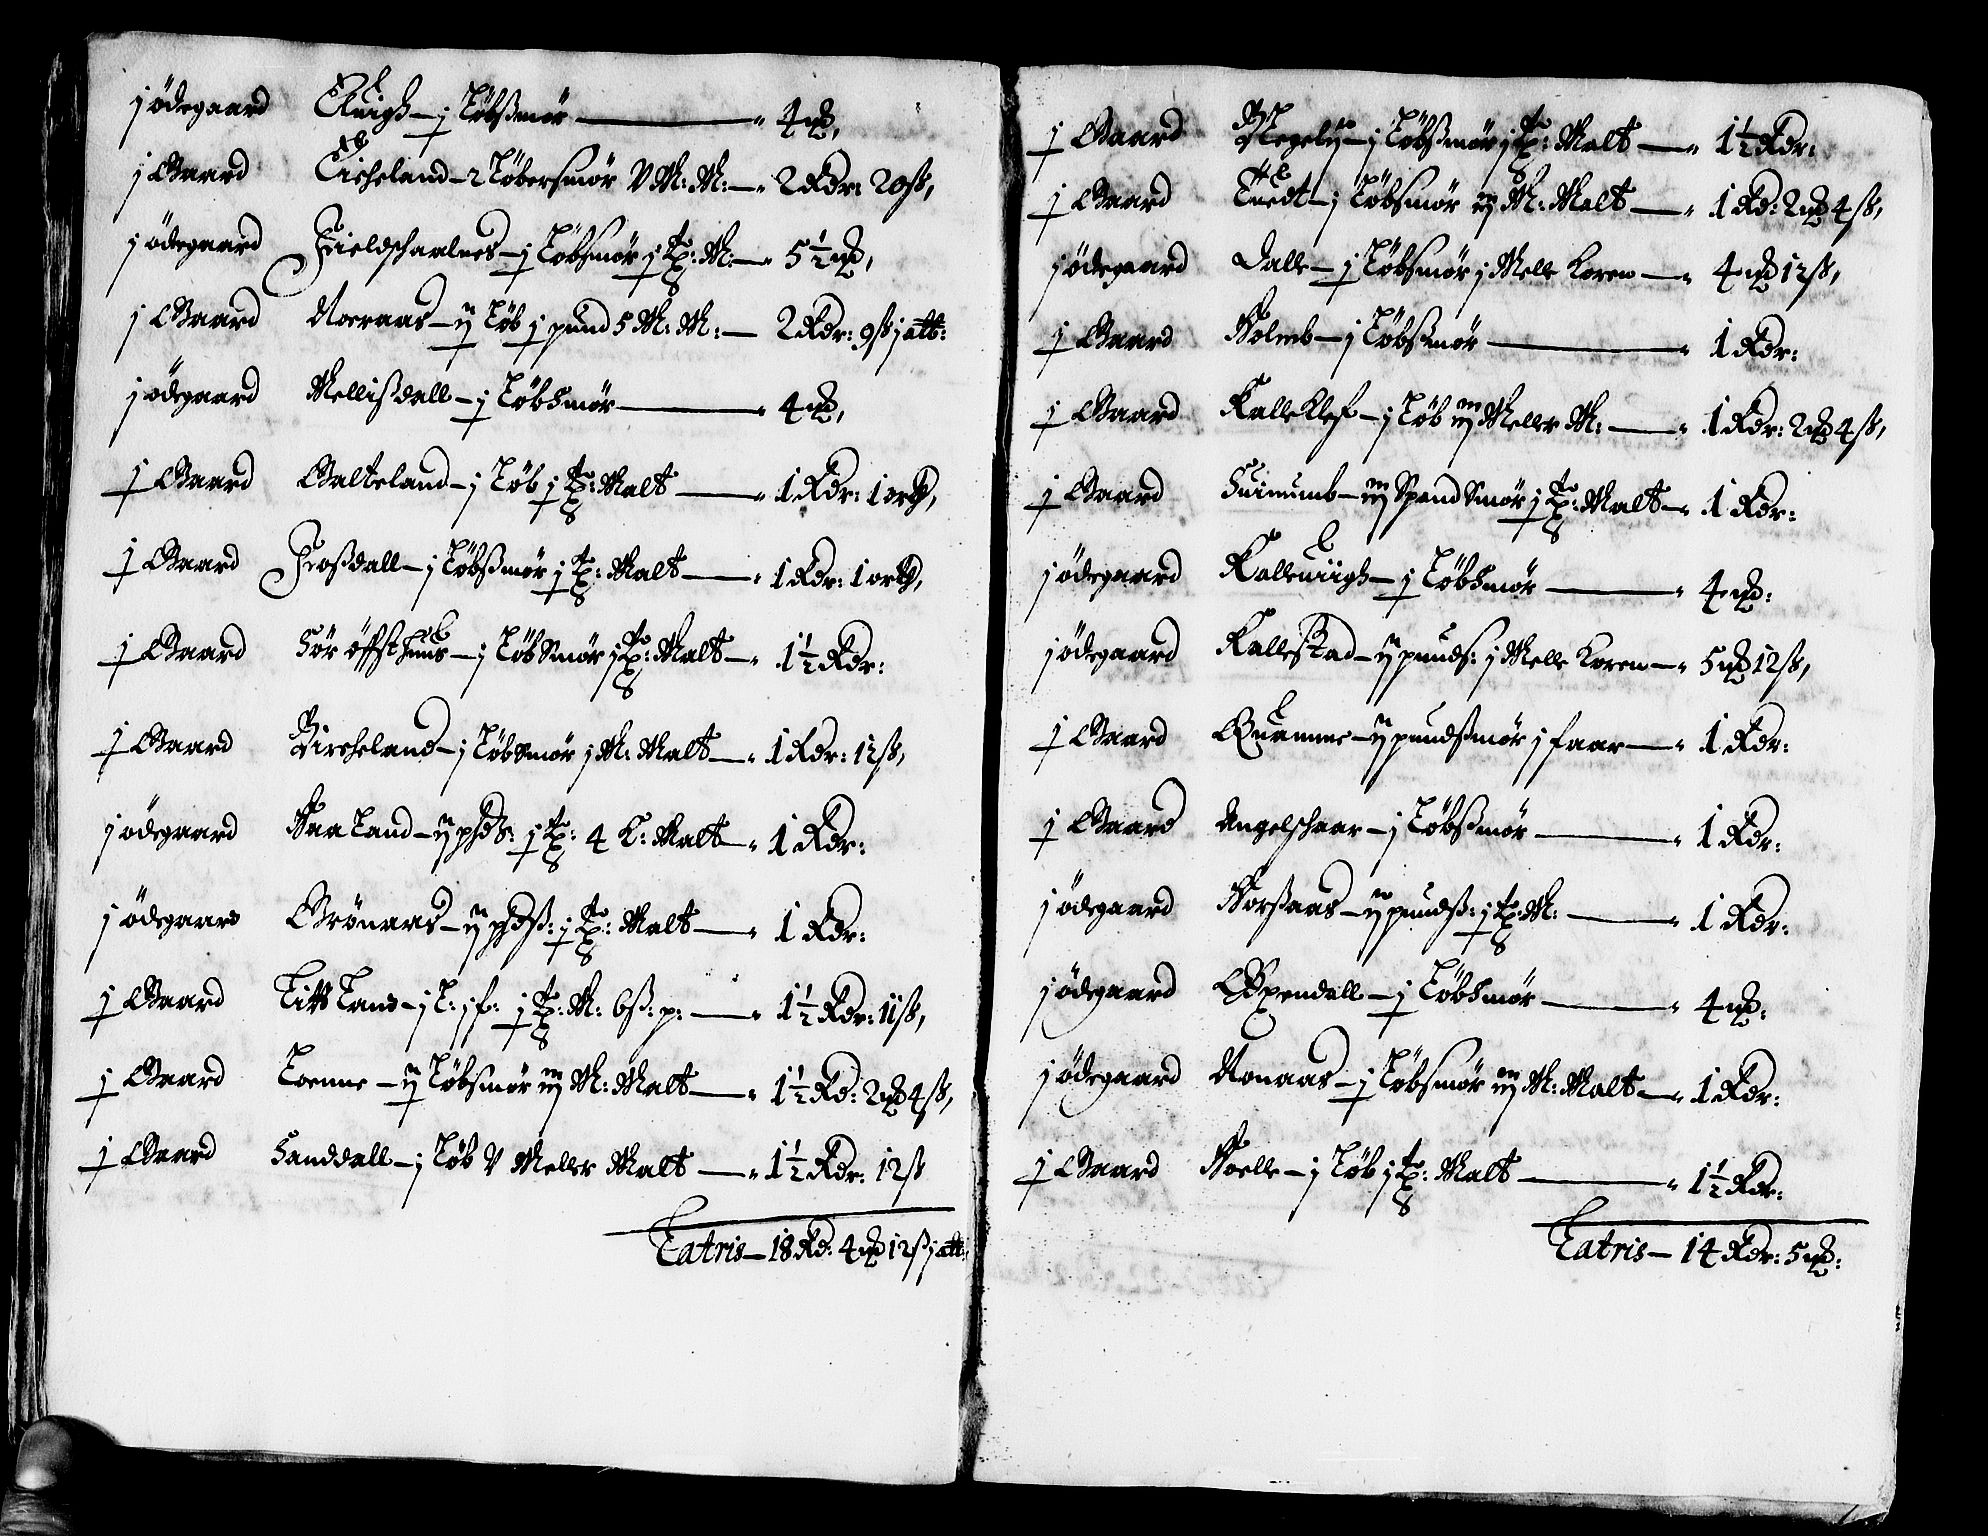 j ödegaard Ekuigh – j Löbßmör – 4 mk,
j Gaard Eicheland – 2 Löber smör V M: M: – 2 Rdr: 20 ß,
j ödegaard Fieldschaalnes – j Löb smör j tp: M: – 5½ mk,
j Gaard Noeraas – ij Löb j pund 5 M: M: – 2 Rdr: 9 ß j alb:
j ödegaard Mellißdall – j Löb smör – 4 mk,
j Gaard Galteland – j Löb j tp: Malt – 1 Rdr: 1 ort,
j Gaard Froßdall – j Löbßmör j tp: Malt – 1 Rdr: 1 ort,
j Gaard Sör öffsthuus – j Löb smör j tp: Malt – 1½ Rdr:
j Gaard Bircheland – j Löb smör j M: Malt – 1 Rdr: 12 ß,
j ödegaard Haaland – ij pds: j tp: 4 K: Malt – 1 Rdr:
j ödegaard Grönaas – ij pdß: j tp: Malt – 1 Rdr:
j Gaard Litt Land – j L: j f: j tp: M: 6 ß: p: – 1½ Rdr: 11 ß,
j Gaard Loenne – ij Löb smör iij M: Malt – 1½ Rd: 2 mk 4 ß,
j Gaard Sanddall – j Löb V Meller Malt – 1½ Rdr: 12 ß
Latris – 18 Rd: 4 mk 12 ß j alb:
j Gaard Negely – j Löbßmör j tp: Malt – 1½ Rdr:
j Gaard Tuedt – j Löb smör iij M: Malt – 1 Rd: 2 mk 4 ß,
j ödegaard Dalle – j Löb smör j Melle Koren – 4 mk 12 ß,
j Gaard Holmb – j Löbßmör – 1 Rdr:
j Gaard Kalleklef – j Löb iij Meller M: – 1 Rdr: 2 mk 4 ß,
j Gaard Suinumb – iij Spand Smör j tp: Malt – 1 Rdr:
j ödegaard Kalleuiigh – j Löb smör – 4 mk:
j ödegaard Kallestad – ij punds: j Melle Koren – 5 mk 12 ß,
j Gaard Quamme – ij pundßmör j faar – 1 Rdr:
j Gaard Angelschaar – j Löbßmör – 1 Rdr:
j ödegaard Horßaas – ij pundß: j tp: M: – 1 Rdr:
j ödegaard Expendall – j Löb smör – 4 mk:
j ödegaard Nonaas – j Löb smör iij M: Malt – 1 Rdr:
j Gaard Hoelle – j Löb j tp: Malt – 1½ Rdr:
Latris – 14 Rdr: 5 mk: